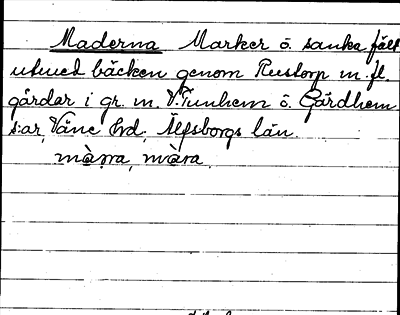 Maderna Marker ö. sanka fält
utmed bäcken genom Rustorp m. fl.
gårdar i gr. m. V.Tunhem ö. Gärdhem
s:ar, Väne hrd, Älfsborgs län.